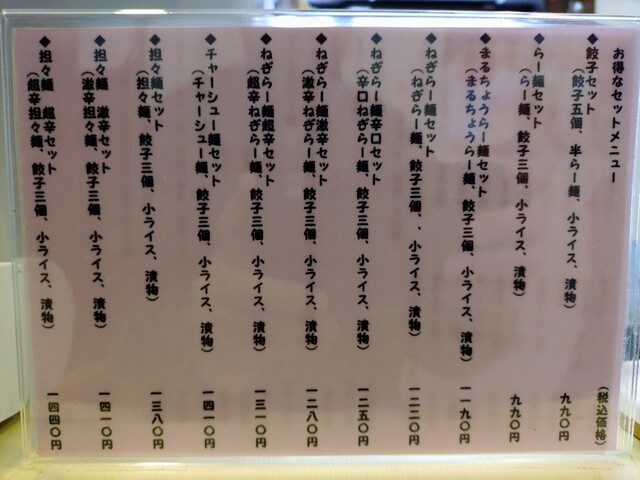 お得なセットメニュー
(税込価格)
◆餃子セット
(餃子五個、半らー麺、小ライス、漬物)
九九〇円
◆らー麺セット
(らー麺、餃子三個、小ライス、漬物)
九九〇円
◆まるちょうらー麺セット
(まるちょうらー麺、餃子三個、小ライス、漬物)
一一九〇円
◆ねぎらー麺セット
(ねぎらー麺、餃子三個、、小ライス、漬物)
一二二〇円
◆ねぎらー麺辛口セット
(辛口ねぎらー麺、餃子三個、小ライス、漬物)
一二五〇円
◆ねぎらー麺激辛セット
(激辛ねぎらー麺、餃子三個、小ライス、漬物)
一二八〇円
◆ねぎらー麺超辛セット
(超辛ねぎらー麺、餃子三個、小ライス、漬物)
一三一〇円
◆チャーシュー麺セット
(チャーシュー麺、餃子三個、小ライス、漬物)
一四一〇円
◆担々麺セット
(担々麺、餃子三個、小ライス、漬物)
一三八〇円
◆担々麺 激辛セット
(激辛担々麺、餃子三個、小ライス、漬物)
一四一〇円
◆担々麺 超辛セット
(超辛担々麺、餃子三個、小ライス、漬物)
一四四〇円